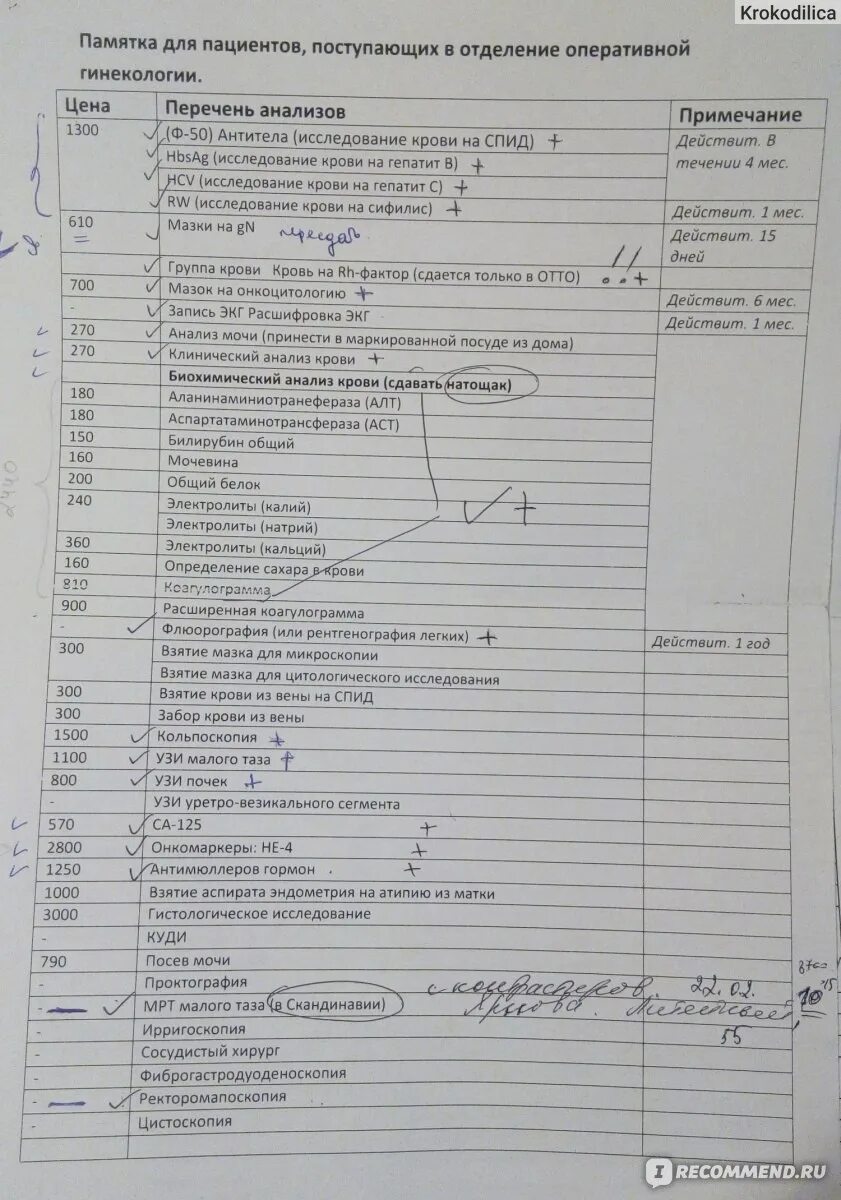 Krokodilica
Памятка для пациентов, поступающих в отделение оперативной
гинекологии.
Цена Перечень анализов Примечание
1300 (Ф-50) Антитела (исследование крови на СПИД) + Действит. В
HbsAg (исследование крови на гепатит В) + течении 4 мес.
HCV (исследование крови на гепатит С) +
RW (исследование крови на сифилис) + Действит. 1 мес.
610 Мазки на gN пересдать Действит. 15
дней
Группа крови Кровь на Rh-фактор (сдается только в ОТТО) !! +
700 Мазок на онкоцитологию + Действит. 6 мес.
- Запись ЭКГ Расшифровка ЭКГ Действит. 1 мес.
270 Анализ мочи (принести в маркированной посуде из дома)
270 Клинический анализ крови +
Биохимический анализ крови (сдавать натощак)
180 Аланинаминиотранефераза (АЛТ)
180 Аспартатаминотрансфераза (АСТ)
150 Билирубин общий
160 Мочевина
200 Общий белок
240 Электролиты (калий) +
Электролиты (натрий)
360 Электролиты (кальций)
160 Определение сахара в крови
810 Коагулограмма
2440
900 Расширенная коагулограмма
- Флюорография (или рентгенография легких) + Действит. 1 год
300 Взятие мазка для микроскопии
Взятие мазка для цитологического исследования
300 Взятие крови из вены на СПИД
300 Забор крови из вены
1500 Кольпоскопия +
1100 УЗИ малого таза +
800 УЗИ почек +
- УЗИ уретро-везикального сегмента
570 СА-125 +
2800 Онкомаркеры: НЕ-4 +
1250 Антимюллеров гормон . +
1000 Взятие аспирата эндометрия на атипию из матки
3000 Гистологическое исследование
- КУДИ
790 Посев мочи
- Проктография
- МРТ малого таза (в Скандинавии) с 22.02. 10 15
55
- Ирригоскопия
- Сосудистый хирург
- Фиброгастродуоденоскопия
- Ректоромапоскопия
- Цистоскопия
IRECOMMEND.RU